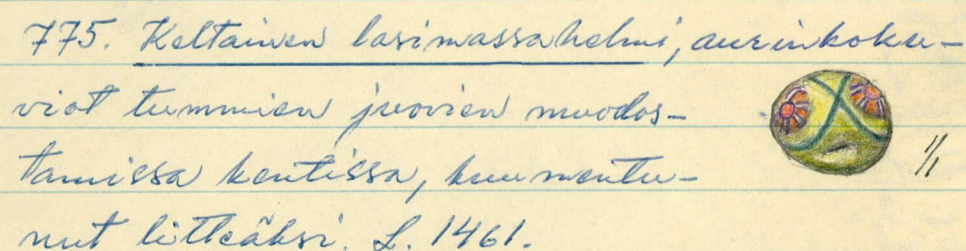 775. Keltainen lasimassahelmi, aurinkoku-
viot tummien juovien muodos-
tamissa kentissä, kuumentu-
nut litteäksi. L. 1461.
1/1